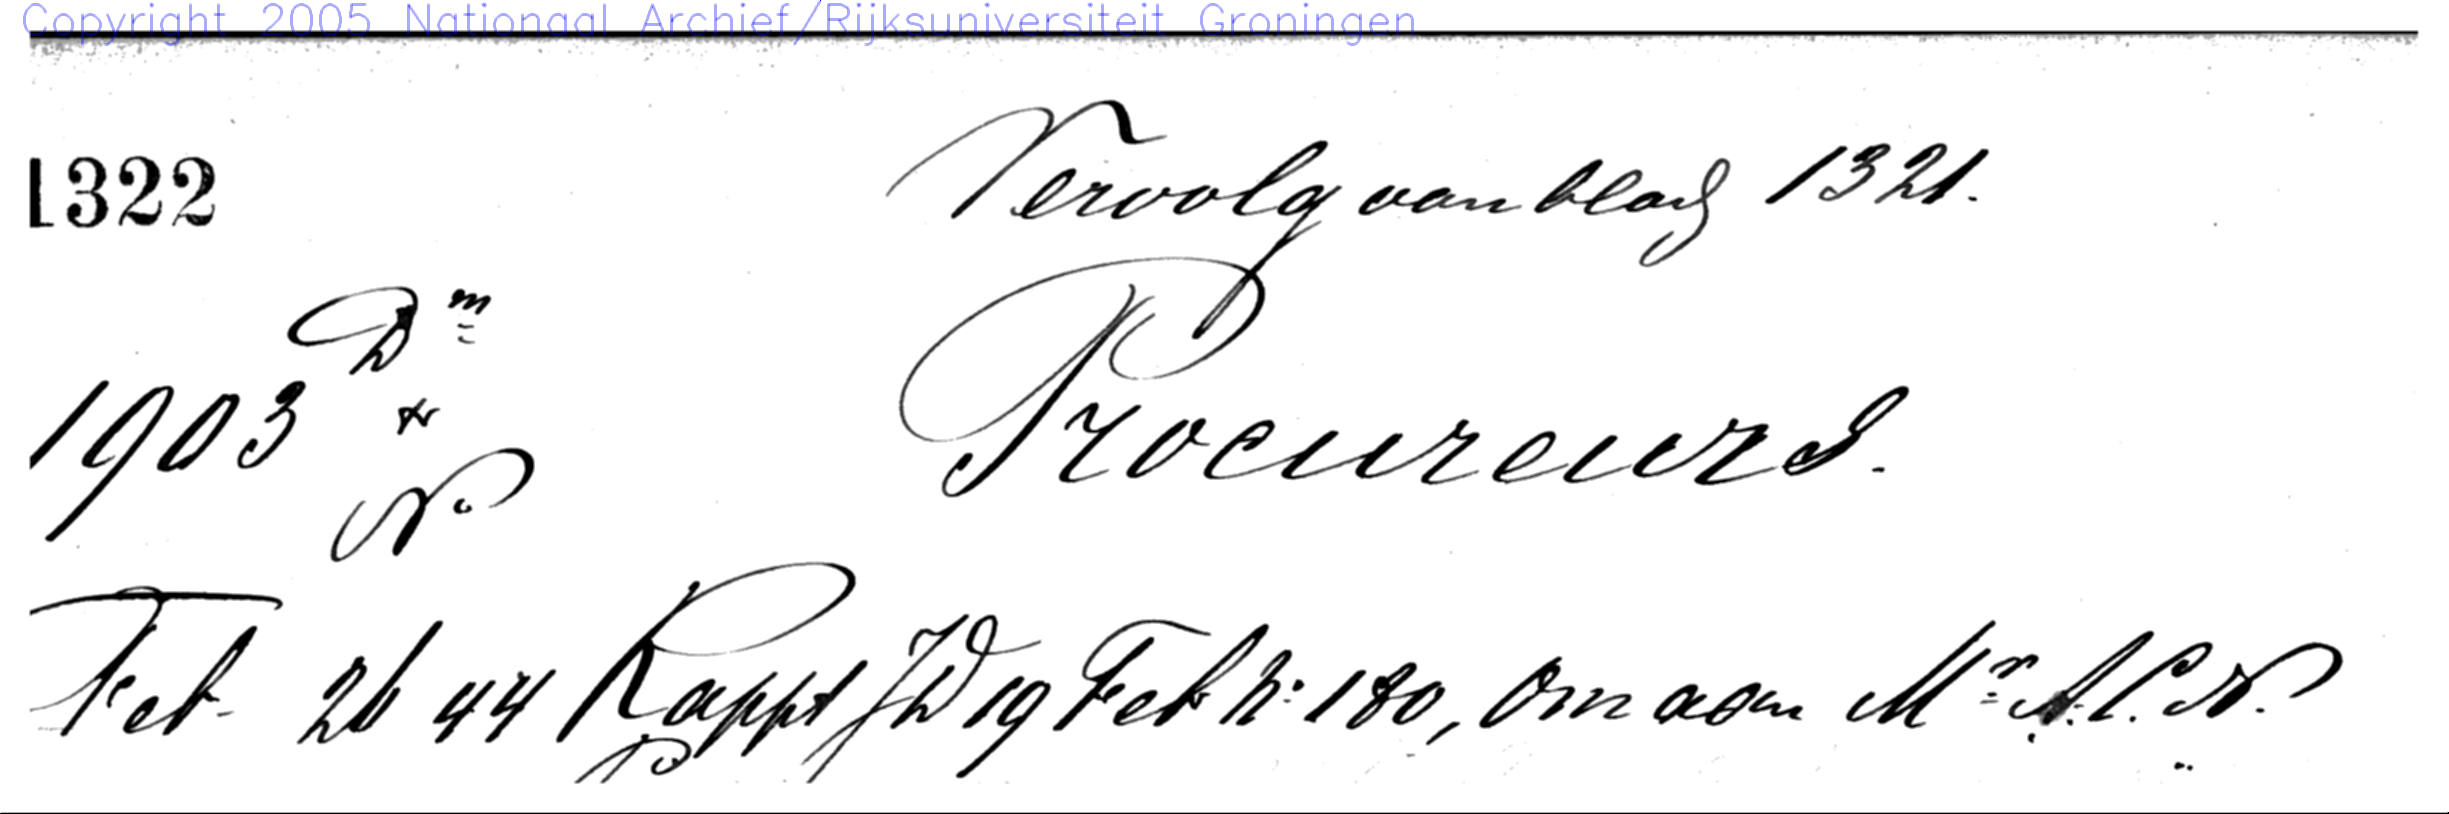 Copyright 2005 Nationaal Archief/Rijksuniversiteit Groningen
1322
Vervolg van blad 1321.
Dm
1903 &
No
Procureurs.
Feb 26 44 Rappt JD 19 Feb No 180, Om aan Mr A. C. N.